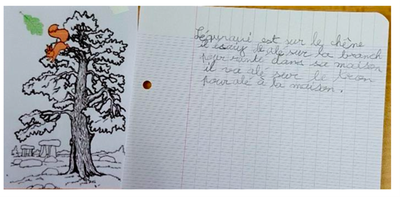 Légureui est sur le chêne
il eseuf de ale sur la branch
pour renté dans sa maison
il va ale sur le tron
pour alé à la maison.